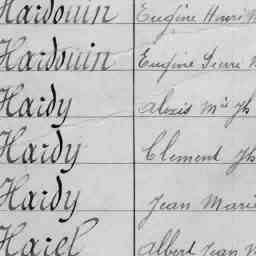 Hardouin Eugène Henri
Hardouin Eugène Pierre
Hardy Alexis Mie Jh
Hardy Clément Jh
Hardy Jean Marie
Harel Albert Jean